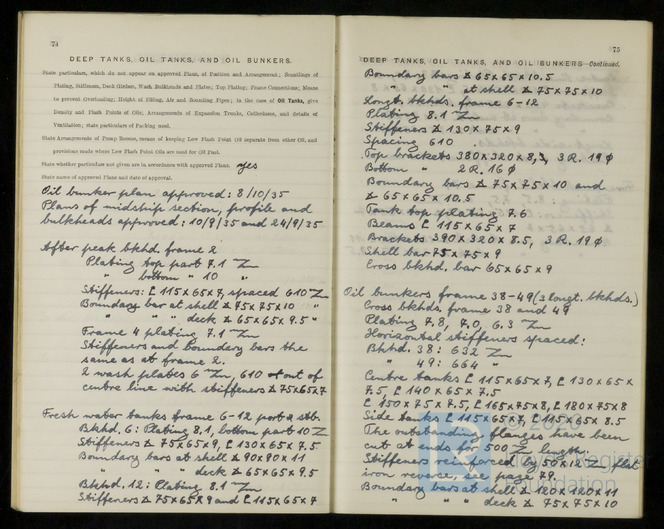 74
DEEP TANKS, OIL TANKS, AND OIL BUNKERS.
State particulars, which do not appear on approved Plans, of Position and Arrangement; Scantlings of
Plating, Stiffeners, Deck Girders, Wash Bulkheads and Plates; Top Plating; Frame Connections; Means
to prevent Overloading; Height of Filling, Air and Sounding Pipes; in the case of Oil Tanks, give
Density and Flash Points of Oils; Arrangements of Expansion Trunks, Cofferdams, and details of
Ventilation; state particulars of Packing used.
State Arrangements of Pump Rooms, means of keeping Low Flash Point Oil separate from other Oil, and
provisions made where Low Flash Point Oils are used for Oil Fuel.
State whether particulars not given are in accordance with approved Plans. yes
State name of approved Plans and date of approval.
Oil bunker plan approved: 8/10/35
Plans of midship section, profile and
bulkheads approved: 10/9/35 and 24/9/35
After peak bkhd. frame 2
Plating top part 7.1 m/m
" bottom " 10 "
Stiffeners: L 115x65x7, spaced 610 m/m
Boundary bar at shell 75x75x10 "
" " " deck 65x65x9.5 "
Frame 4 plating 7.1 m/m
Stiffeners and boundary bars the
same as at frame 2.
2 wash plates 6 m/m, 610 out of
centre line with stiffeners 75x65x7
Fresh water tanks frame 6-12 port & stb.
Bkhd. 6: Plating 8.1, bottom part 10 m/m
Stiffeners 75x65x9, L 130x65x7.5
Boundary bars at shell 90x90x11
" " " deck 65x65x9.5
Bkhd. 12: Plating 8.1 m/m
Stiffeners 75x65x9 and L 115x65x7
75
DEEP TANKS, OIL TANKS, AND OIL BUNKERS—Continued.
Boundary bars 65x65x10.5
" " at shell 75x75x10
Longt. bkhds. frame 6-12
Plating 8.1 m/m
Stiffeners 130x75x9
Spacing 610
Top brackets 380x320x8.5, 3 R. 19 ø
Bottom " 2 R. 16 ø
Boundary bars 75x75x10 and
65x65x10.5
Tank top plating 7.6
Beams L 115x65x7
Brackets 390x320x8.5, 3 R. 19 ø
Shell bar 75x75x9
Cross bkhd. bar 65x65x9
Oil bunkers frame 38-49 (3 longt. bkhds.)
Cross bkhds. frame 38 and 49
Plating 7.8, 7.0, 6.3 m/m
Horizontal stiffeners spaced:
Bkhd. 38: 632 m/m
" 49: 664 "
Centre tanks L 115x65x7, L 130x65x
7.5, L 140x65x7.5
L 150x75x7.5, L 165x75x8, L 180x75x8
Side tanks L 115x65x7, L 115x65x8.5
The outstanding flanges have been
cut at ends for 500 m/m length.
Stiffeners reinforced by 50x12 m/m flat
iron reverse, see page 79.
Boundary bars at shell 120x120x11
" " " deck 75x75x10
© 2020
Lloyd's Register
Foundation